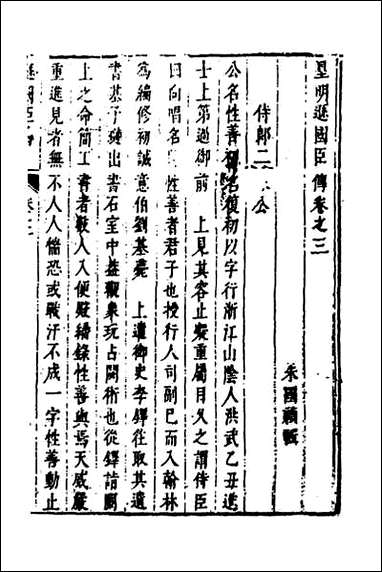 皇明遜國臣傳卷之三
朱國禎輯
侍郎二 公
公名性善 名復初以字行浙江山陰人洪武乙丑進
士上第過御前 上見其容止凝重屬目久之謂侍臣
曰向唱名 性善者君子也授行人司副已而入翰林
為編修初誠意伯劉基薨 上遣御史李鐸往取其遺
書基子璉出 書石室中蓋觀象玩占閟術也從鐸詣闕
上之命簡工書者數人入便殿繕錄性善與焉天威嚴
重進見者無不人人惴恐或戰汗不成一字性善動止